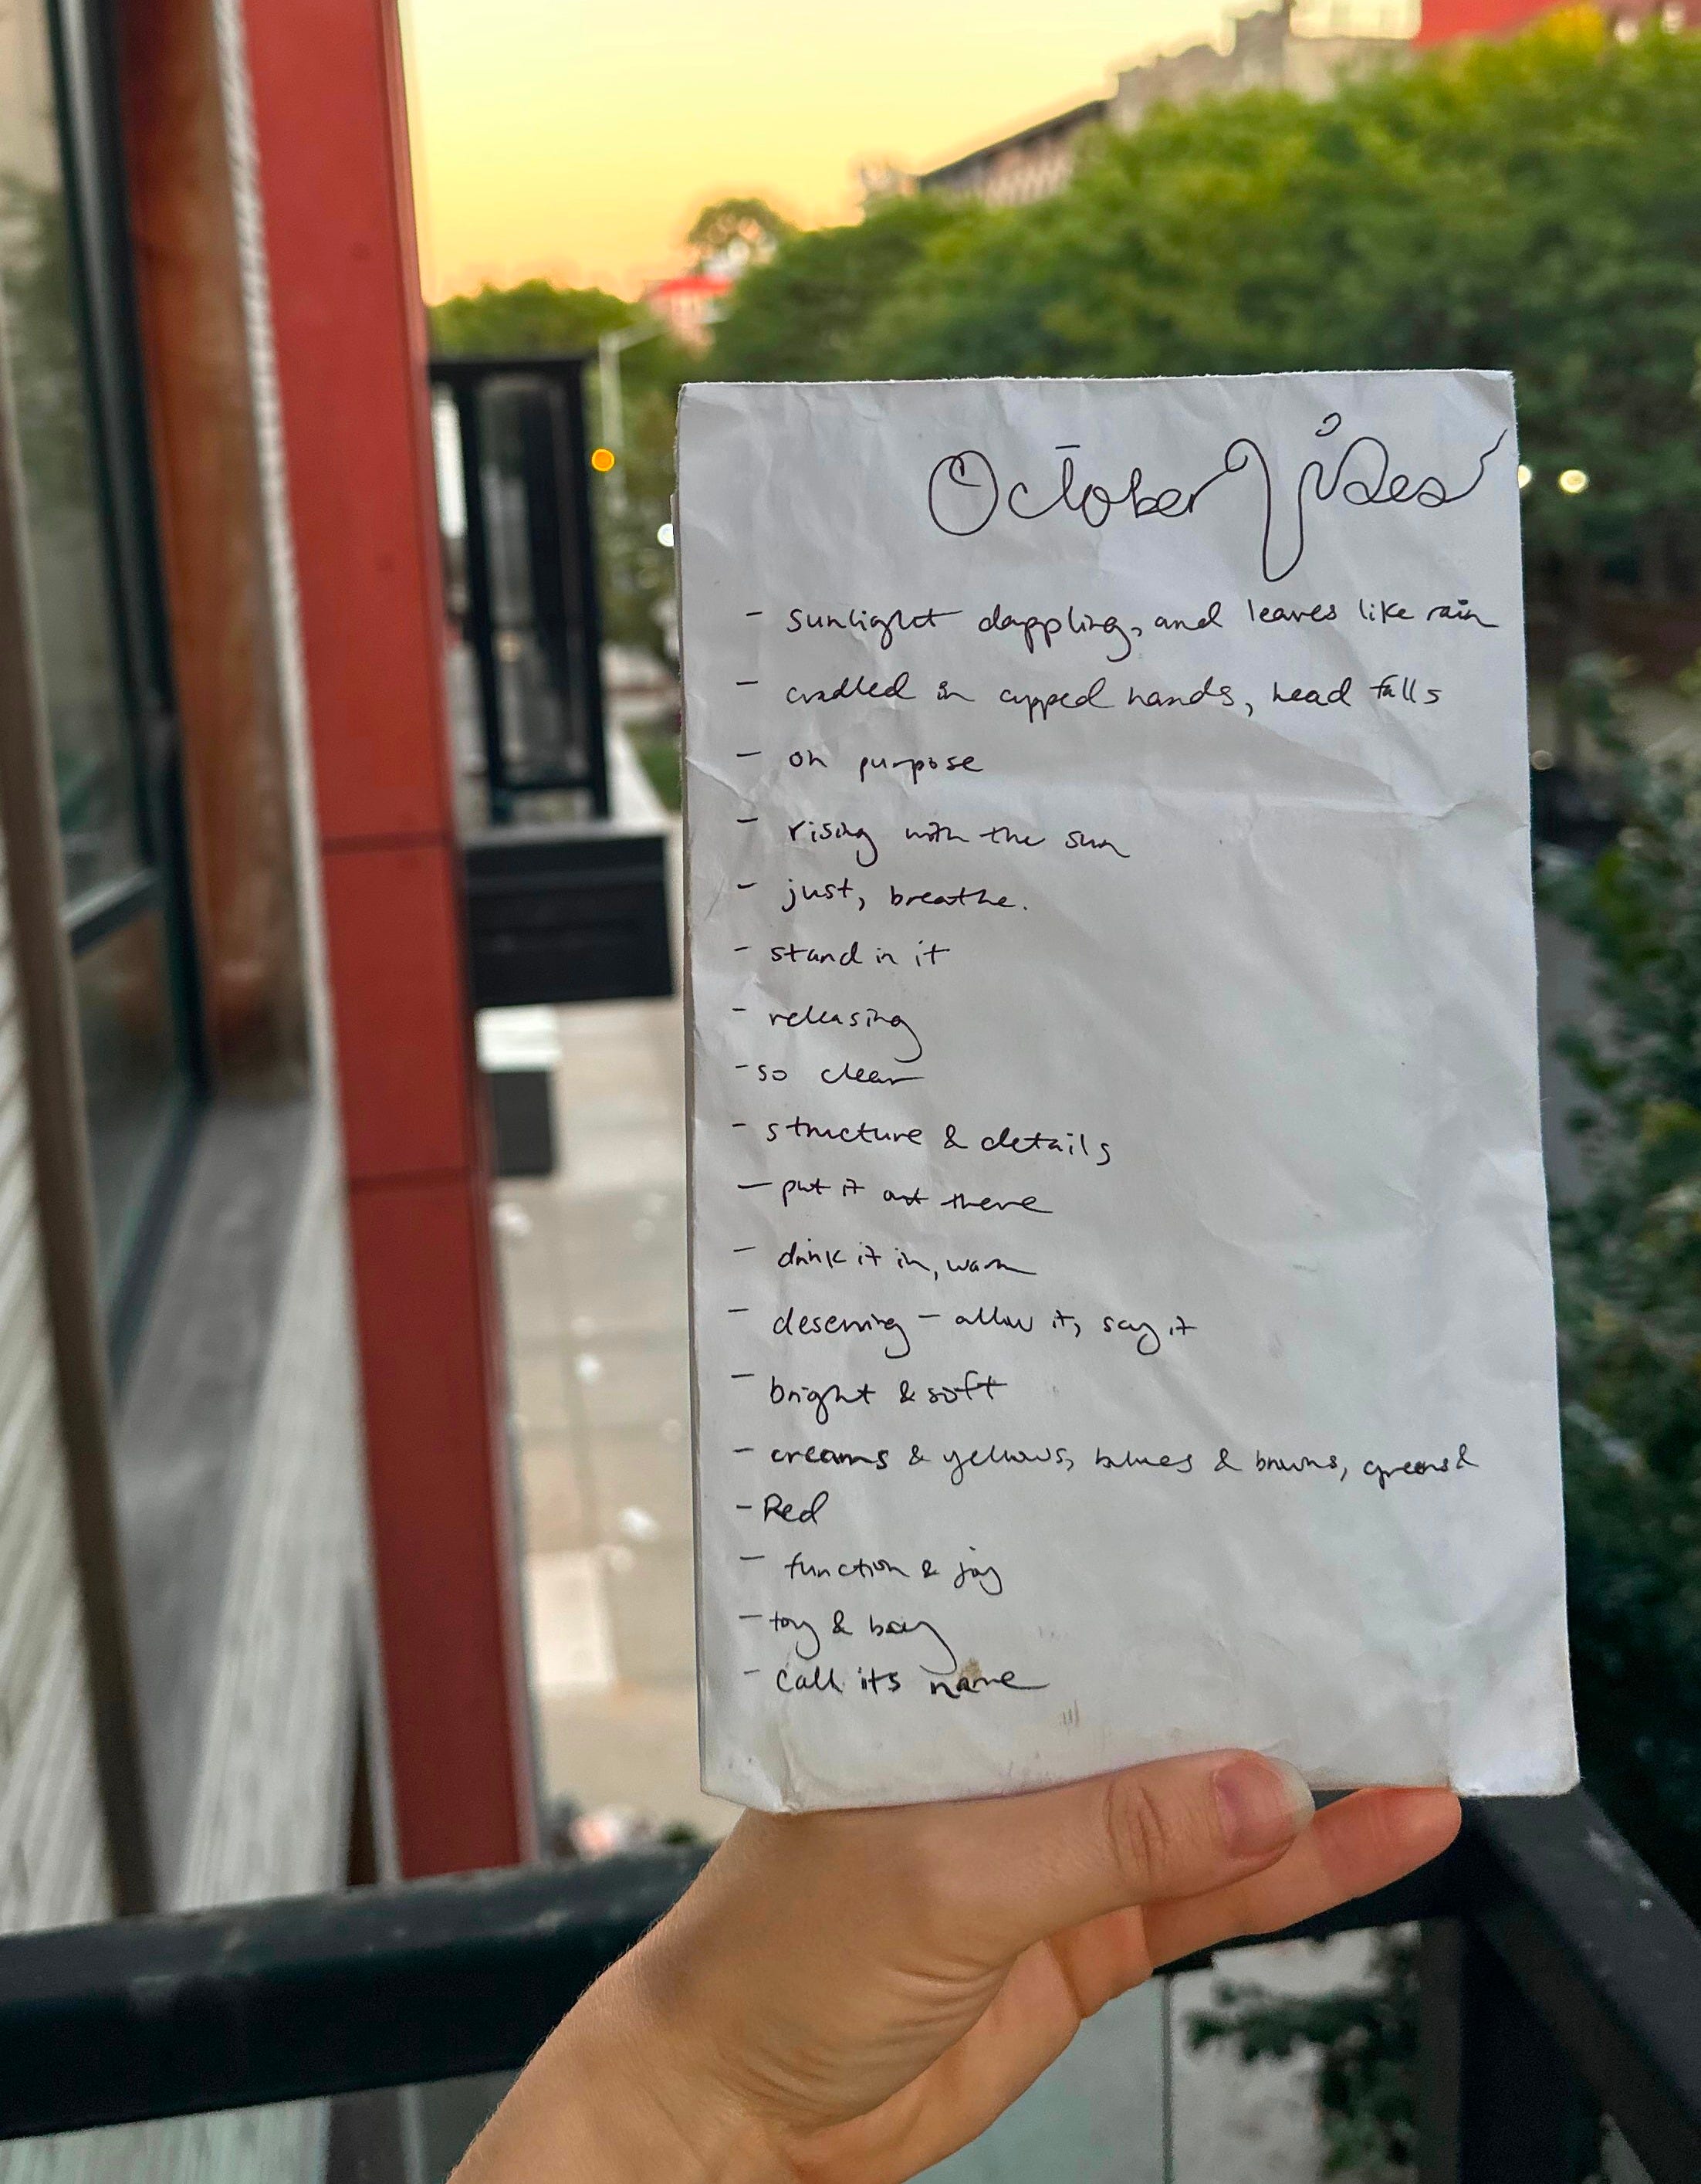 October Vibes
- sunlight dappling, and leaves like rain
- cradled in cupped hands, head falls
- on purpose
- rising with the sun
- just, breathe.
- stand in it
- releasing
- so clear
- structure & details
- put it out there
- drink it in, warm
- deserving - allow it, say it
- bright & soft
- creams & yellows, blues & browns, greens &
- Red
- function & joy
- toy & boy
- call its name